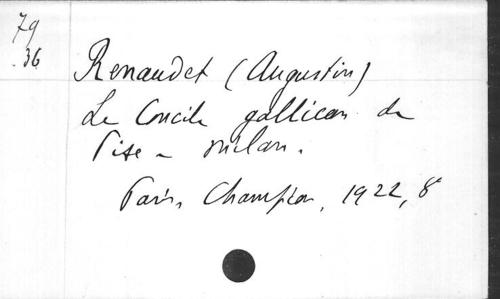 79
36
Renaudet (Augustin)
Le Concile gallican de
Pise - Milan.
Paris, Champion, 1922, 8°